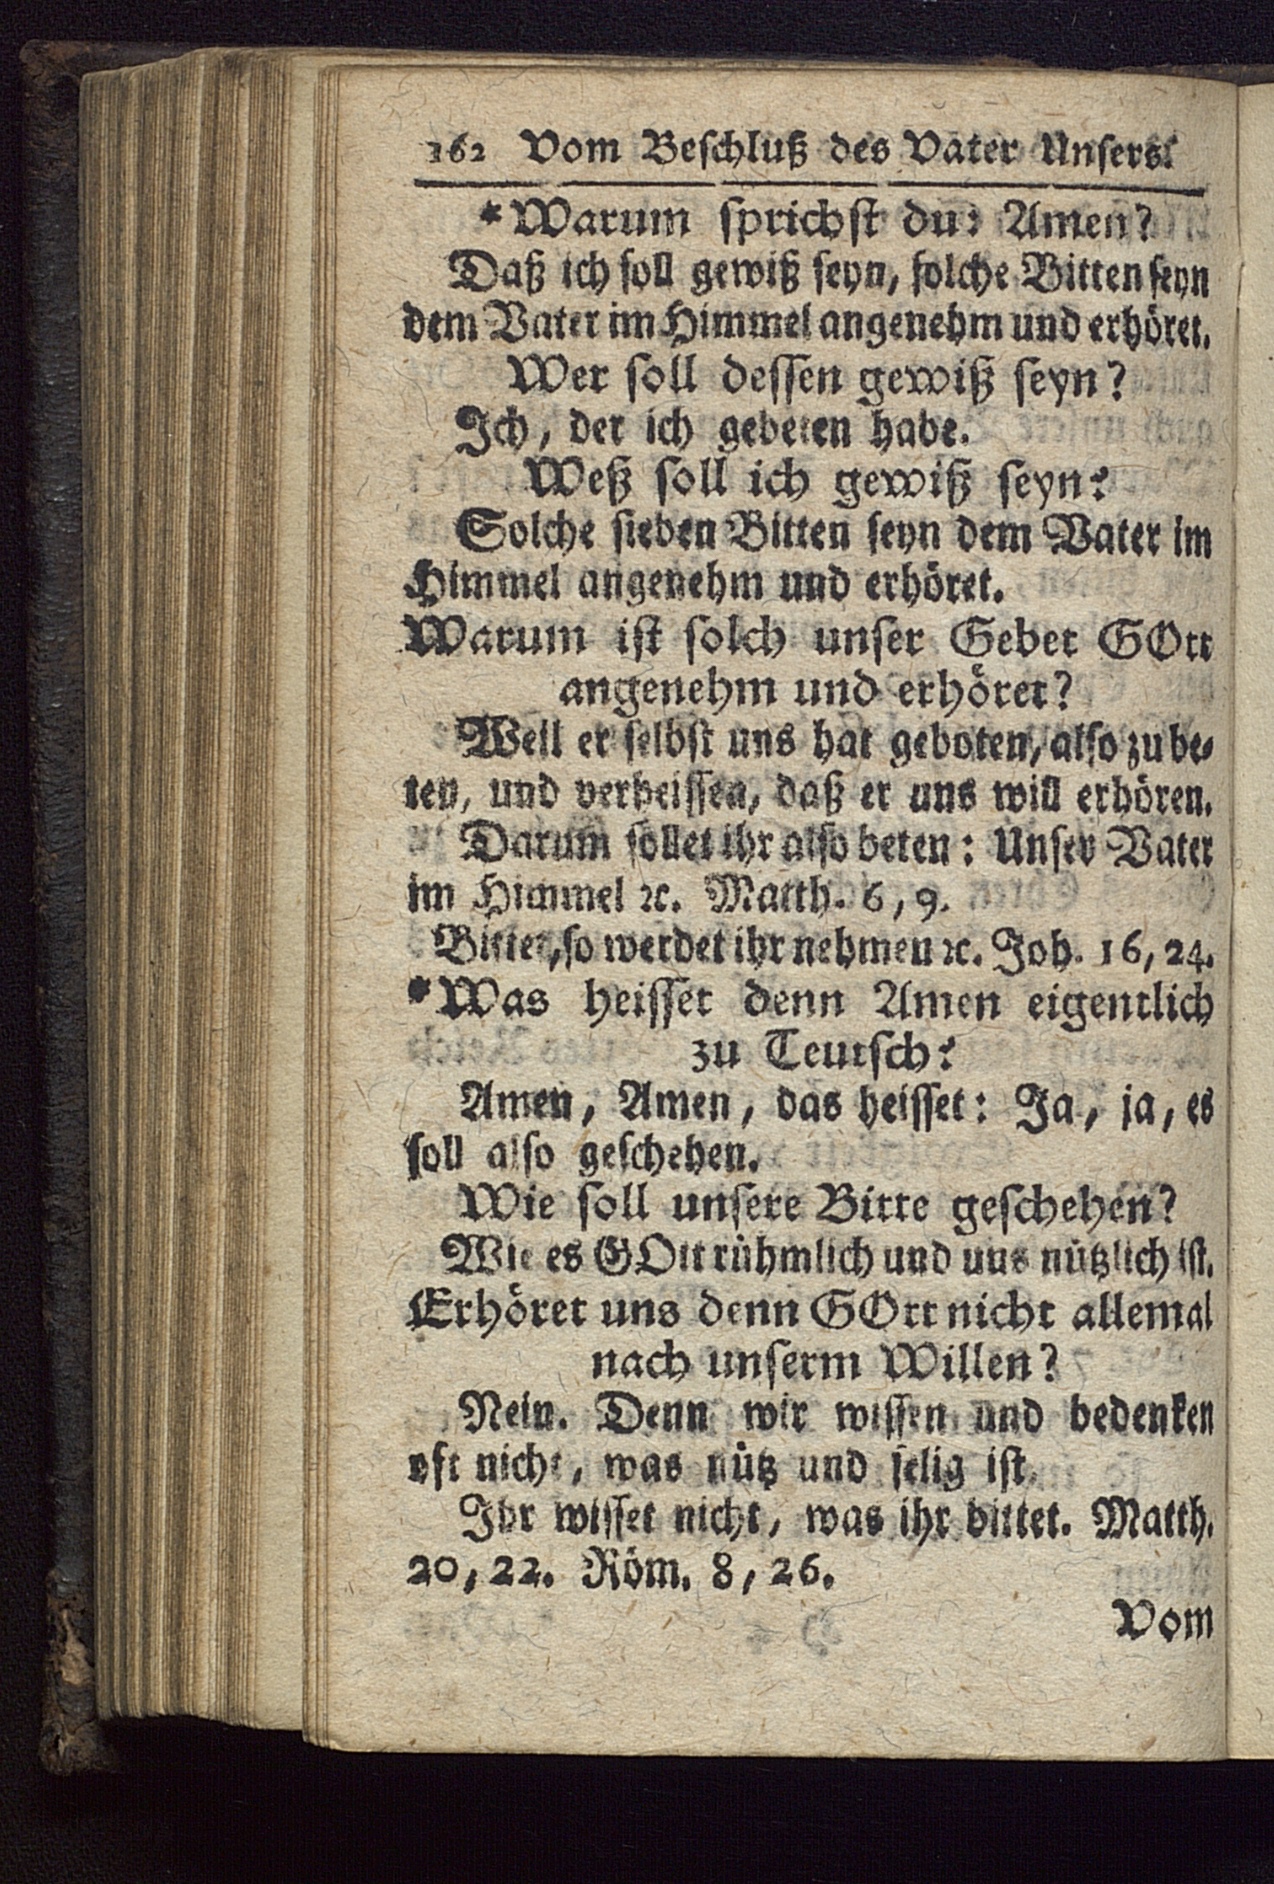 162 Vom Beschluß des Vater Unsers.
*Warum sprichst du: Amen?
Daß ich soll gewiß seyn, solche Bitten seyn
dem Vater im Himmel angenehm und erhöret.
Wer soll dessen gewiß seyn?
Ich, der ich gebeten habe.
Weß soll ich gewiß seyn?
Solche sieben Bitten seyn dem Vater im
Himmel angenehm und erhöret.
Warum ist solch unser Gebet GOtt
angenehm und erhöret?
Weil er selbst uns hat geboten, also zu be-
ten, und verheissen, daß er uns will erhören.
Darum sollet ihr also beten: Unser Vater
im Himmel ꝛc. Matth. 6, 9.
Bittet, so werdet ihr nehmen ꝛc. Joh. 16, 24.
*Was heisset denn Amen eigentlich
zu Teutsch?
Amen, Amen, das heisset: Ja, ja, es
soll also geschehen.
Wie soll unsere Bitte geschehen?
Wie es GOtt rühmlich und uns nützlich ist.
Erhöret uns denn GOtt nicht allemal
nach unserm Willen?
Nein. Denn wir wissen und bedenken
oft nicht, was nütz und selig ist.
Ihr wisset nicht, was ihr bittet. Matth.
20, 22. Röm. 8, 26.
Vom